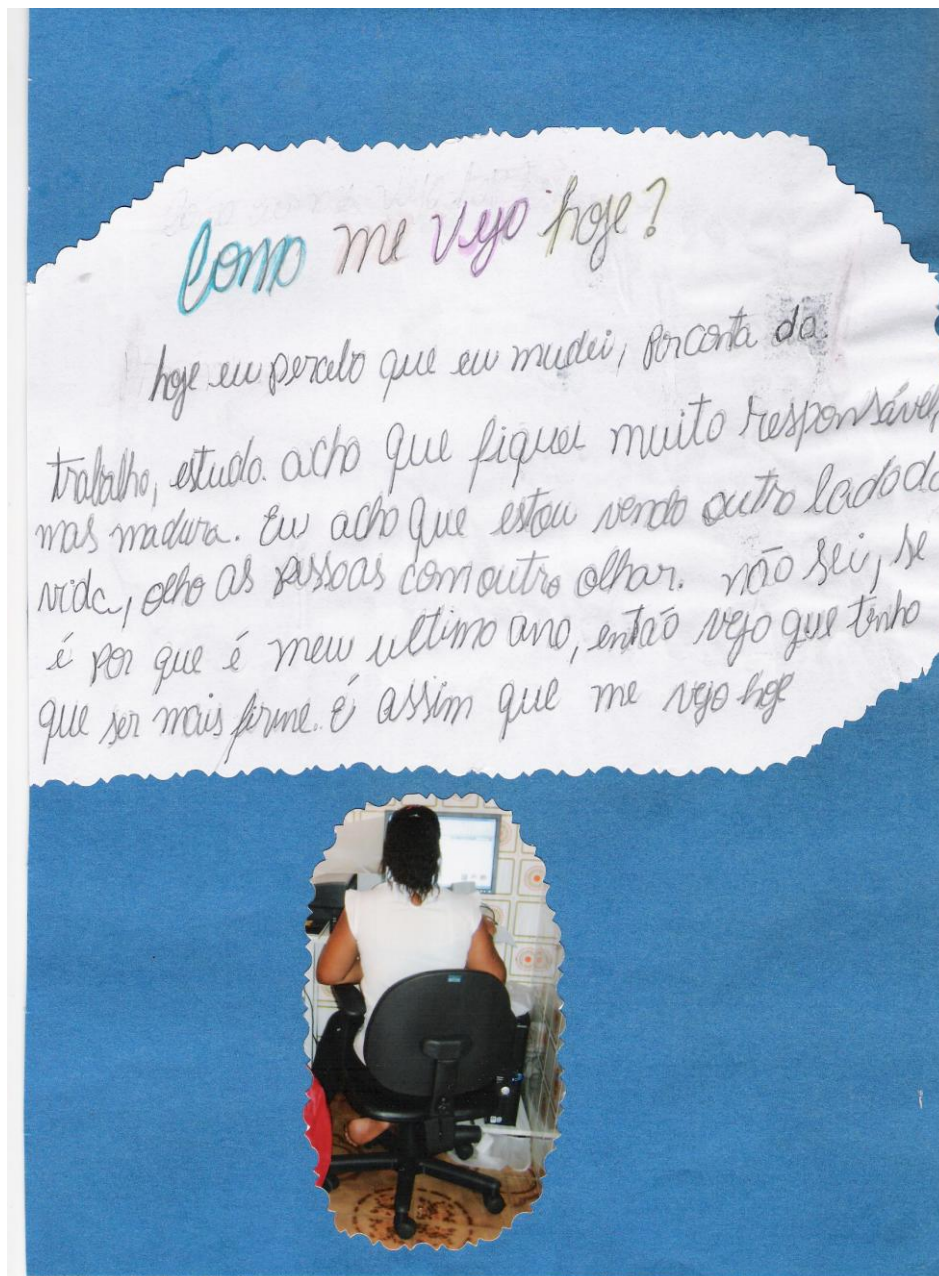 Como me vejo hoje?
hoje eu percebo que eu mudei, por conta da
trabalho, estudo. acho que fiquei muito responsável,
mas madura. Eu acho que estou vendo outro lado da
vida, olho as pessoas com outro olhar. não sei, se
é por que é meu ultimo ano, então vejo que tenho
que ser mais firme. É assim que me vejo hoje